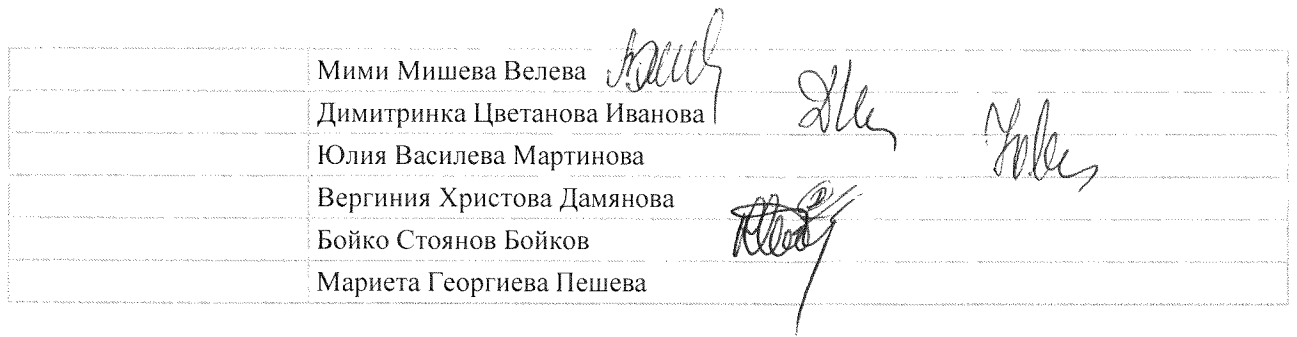 Мими Мишева Велева
Димитринка Цветанова Иванова
Юлия Василева Мартинова
Вергиния Христова Дамянова
Бойко Стоянов Бойков
Мариета Георгиева Пешева